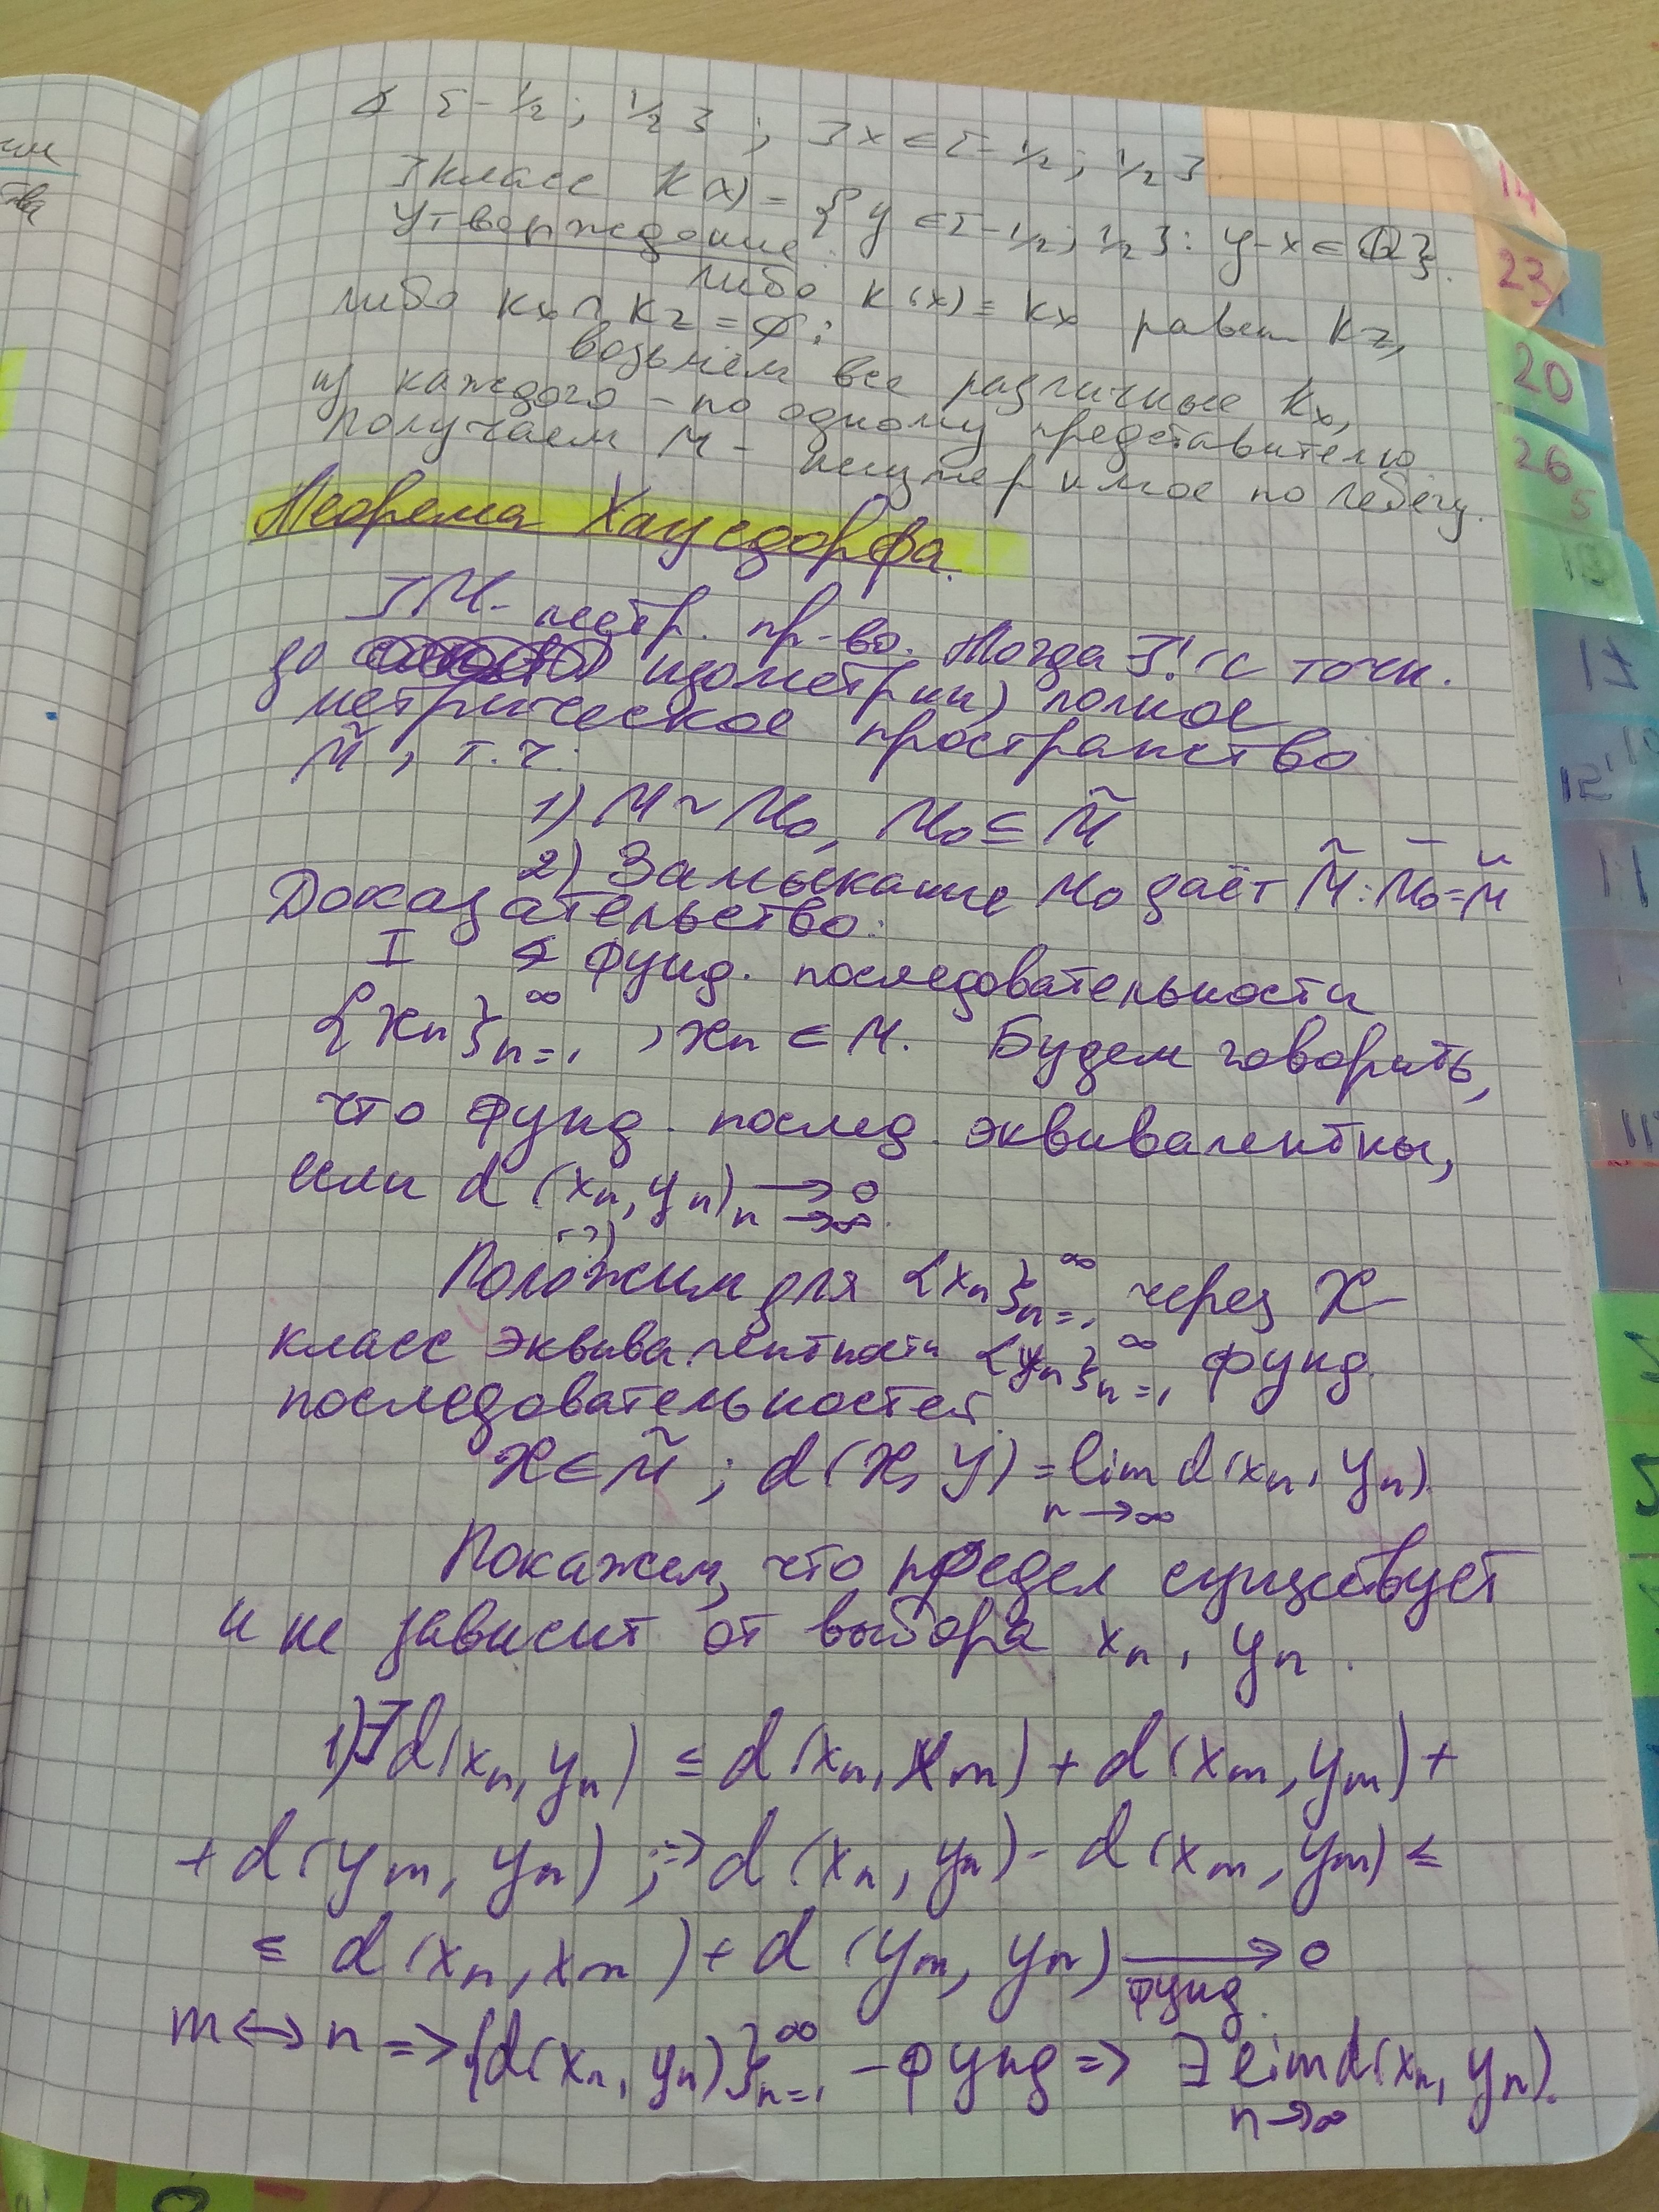 ∢ [-1/2; 1/2]; ∃x∈[-1/2; 1/2]
∃ класс K(x) = {y∈[-1/2; 1/2]: y-x∈ℚ}.
Утверждение: либо K(x) = Kx равен Kz,
либо Kx ∩ Kz = ∅:
возьмём все различные Kx,
из каждого - по одному представителю
получаем M - неизмеримое по Лебегу.
Теорема Хаусдорфа.
∃ M - метр. пр-во. Тогда ∃! (с точн.
до изометрии) полное
метрическое пространство
M̃, т.ч.
1) M ~ M₀, M₀ ⊆ M̃
2) Замыкание M₀ даёт M̃: M̄₀ = M̃
Доказательство:
I ∢ фунд. последовательности
{xₙ}ₙ₌₁^∞, xₙ ∈ M. Будем говорить,
что фунд. послед. эквивалентны,
если d(xₙ, yₙ) →0 n→∞.
Положим для {xₙ}ₙ₌₁^∞ через X
класс эквивалентности {yₙ}ₙ₌₁^∞ фунд.
последовательностей.
X ∈ M̃; d(X, Y) = lim d(xₙ, yₙ)
n→∞
Покажем, что предел существует
и не зависит от выбора xₙ, yₙ.
1)∃ d(xₙ, yₙ) ≤ d(xₙ, xₘ) + d(xₘ, yₘ) +
+ d(yₘ, yₙ); ⇒ d(xₙ, yₙ) - d(xₘ, yₘ) ≤
≤ d(xₙ, xₘ) + d(yₘ, yₙ) → 0
фунд.
m ↔ n => {d(xₙ, yₙ)}ₙ₌₁^∞ - фунд => ∃ lim d(xₙ, yₙ).
n→∞
14
23
20
26
5